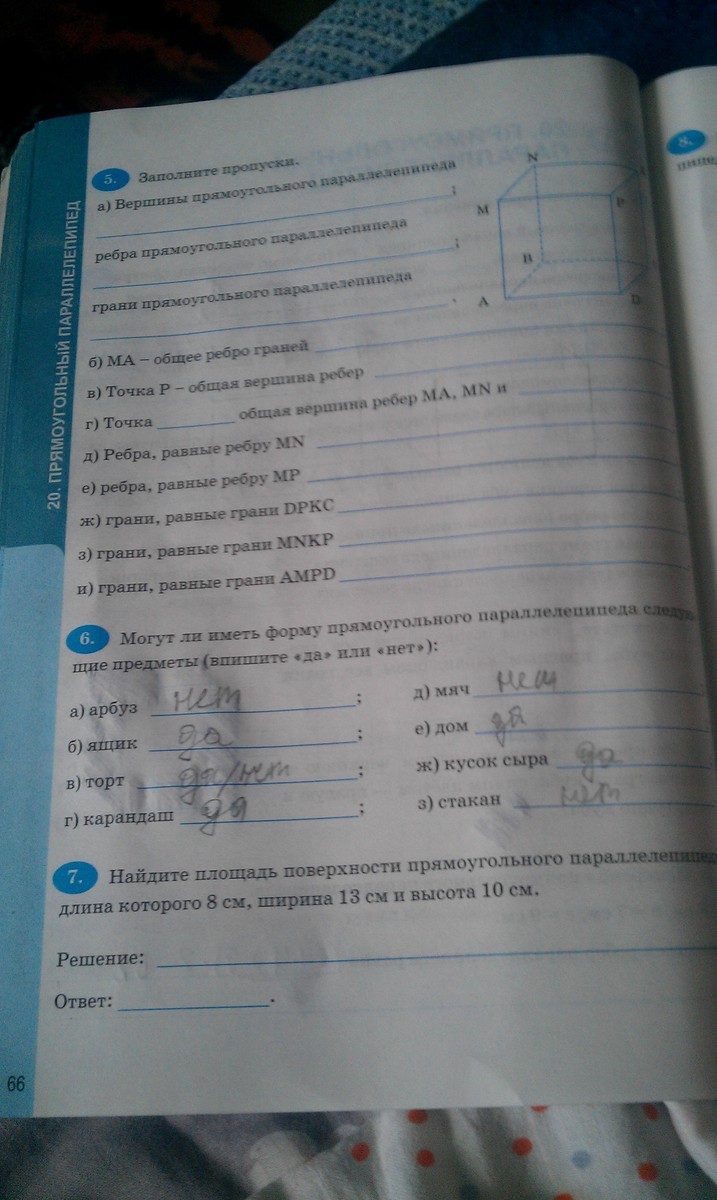 20. ПРЯМОУГОЛЬНЫЙ ПАРАЛЛЕЛЕПИПЕД
5. Заполните пропуски.
а) Вершины прямоугольного параллелепипеда
;
ребра прямоугольного параллелепипеда
;
грани прямоугольного параллелепипеда
.
N
M
P
B
A
D
б) MA – общее ребро граней
в) Точка P – общая вершина ребер
г) Точка общая вершина ребер MA, MN и
д) Ребра, равные ребру MN
е) ребра, равные ребру MP
ж) грани, равные грани DPKC
з) грани, равные грани MNKP
и) грани, равные грани AMPD
6. Могут ли иметь форму прямоугольного параллелепипеда следую-
щие предметы (впишите «да» или «нет»):
а) арбуз нет ;
б) ящик да ;
в) торт да/нет ;
г) карандаш да ;
д) мяч нет
е) дом да
ж) кусок сыра да
з) стакан нет
7. Найдите площадь поверхности прямоугольного
длина которого 8 см, ширина 13 см и высота 10 см.
Решение:
Ответ: .
66
8.